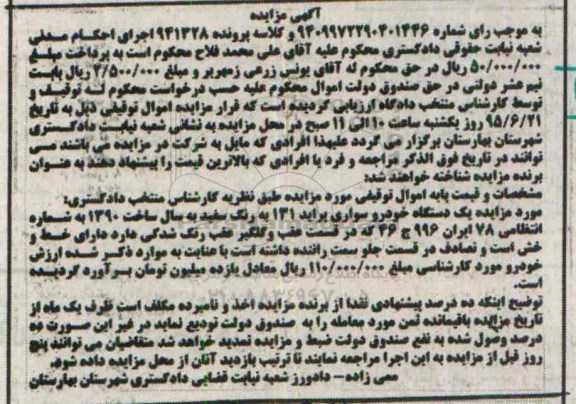 آگهی مزایده
به موجب رای شماره ۹۴۰۹۹۷۲۲۹۰۴۰۱۴۴۶ و کلاسه پرونده ۹۴۱۳۲۸ اجرای احکام مدنی
شعبه نیابت حقوقی دادگستری محکوم علیه آقای علی محمد فلاح محکوم است به پرداخت مبلغ
۵۰/۰۰۰/۰۰۰ ریال در حق محکوم له آقای یونس زرعی زمهریر و مبلغ ۲/۵۰۰/۰۰۰ ریال بابت
نیم عشر دولتی در حق صندوق دولت اموال محکوم علیه حسب درخواست محکوم له توقیف و
توسط کارشناس منتخب دادگاه ارزیابی گردیده است که قرار مزایده اموال توقیفی ذیل به تاریخ
۹۵/۶/۲۱ روز یکشنبه ساعت ۱۰ الی ۱۱ صبح در محل مزایده به نشانی شعبه نیابت دادگستری
شهرستان بهارستان برگزار می گردد علیهذا افرادی که مایل به شرکت در مزایده می باشند می
توانند در تاریخ فوق الذکر مراجعه و فرد یا افرادی که بالاترین قیمت را پیشنهاد دهند به عنوان
برنده مزایده شناخته خواهند شد:
مشخصات و قیمت پایه اموال توقیفی مورد مزایده طبق نظریه کارشناس منتخب دادگستری:
مورد مزایده یک دستگاه خودرو سواری پراید ۱۳۱ به رنگ سفید به سال ساخت ۱۳۹۰ به شماره
انتظامی ۷۸ ایران ۹۹۶ ج ۳۶ که در قسمت عقب وگلگیر عقب رنگ شدگی دارد دارای خط و
خش است و تصادف در قسمت جلو سمت راننده داشته است با عنایت به موارد ذکر شده ارزش
خودرو مورد کارشناسی مبلغ ۱۱۰/۰۰۰/۰۰۰ ریال معادل یازده میلیون تومان برآورد گردیده
است.
توضیح اینکه ده درصد پیشنهادی نقدا از برنده مزایده اخذ و نامبرده مکلف است ظرف یک ماه از
تاریخ مزایده باقیمانده ثمن مورد معامله را به صندوق دولت تودیع نماید در غیر این صورت ده
درصد وصول شده به نفع صندوق دولت ضبط و مزایده تمدید خواهد شد متقاضیان می توانند پنج
روز قبل از مزایده به این اجرا مراجعه نمایند تا ترتیب بازدید آنان از محل مزایده داده شود.
ممی زاده – دادورز شعبه نیابت قضایی دادگستری شهرستان بهارستان